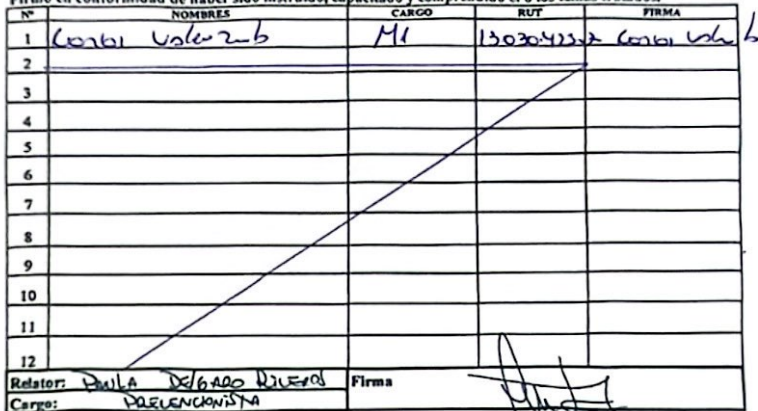 Firmo en conformidad de haber sido instruido, capacitado y comprendido el o los temas tratados.
Nº NOMBRES CARGO RUT FIRMA
1 M1
2
3
4
5
6
7
8
9
10
11
12
Relator: PAULA DELGADO RIVEROS Firma
Cargo: PREVENCIONISTA